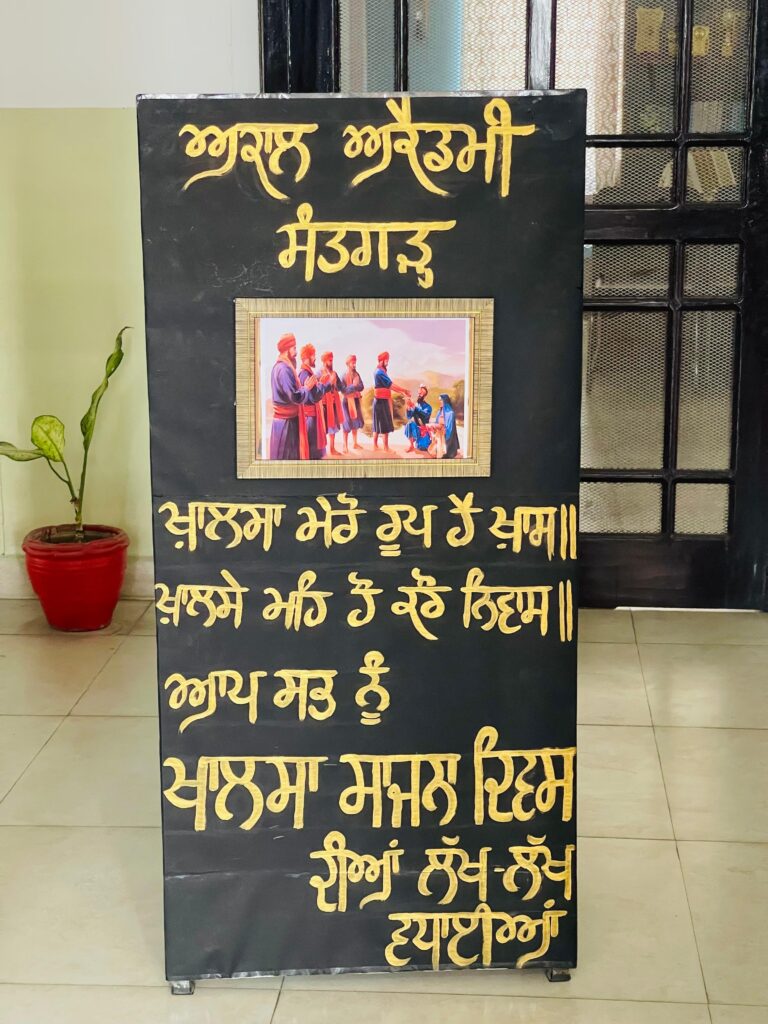 ਅਕਾਲ ਅਕੈਡਮੀ
ਮੰਤਗੜ੍ਹ
ਖ਼ਾਲਸਾ ਮੇਰੋ ਰੂਪ ਹੈ ਖ਼ਾਸ॥
ਖ਼ਾਲਸੇ ਮਹਿ ਹੌ ਕਰੌ ਨਿਵਾਸ॥
ਆਪ ਸਭ ਨੂੰ
ਖਾਲਸਾ ਸਾਜਨਾ ਦਿਵਸ
ਦੀਆਂ ਲੱਖ-ਲੱਖ
ਵਧਾਈਆਂ